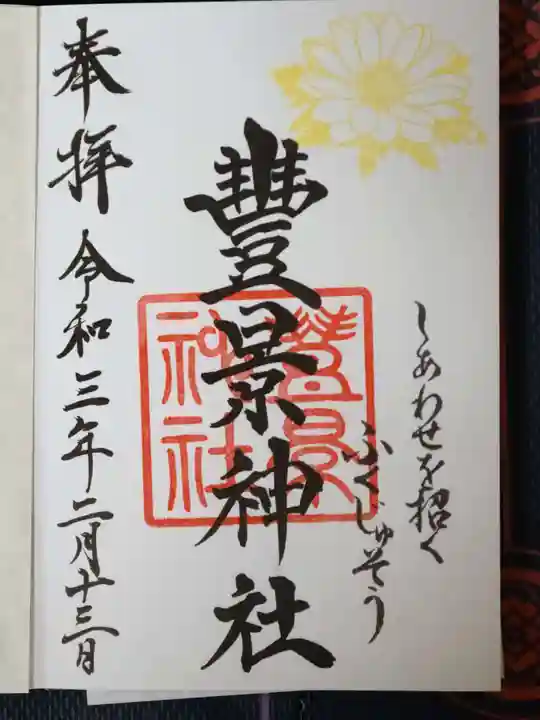 しあわせを招く
ふくじゅそう
豐景神社
豐景
神社
奉拝 令和三年二月十三日